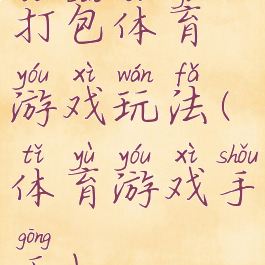 打包体育
yóu xì wán fǎ
游戏玩法(
tǐ yù yóu xì shǒu
体育游戏手
gōng